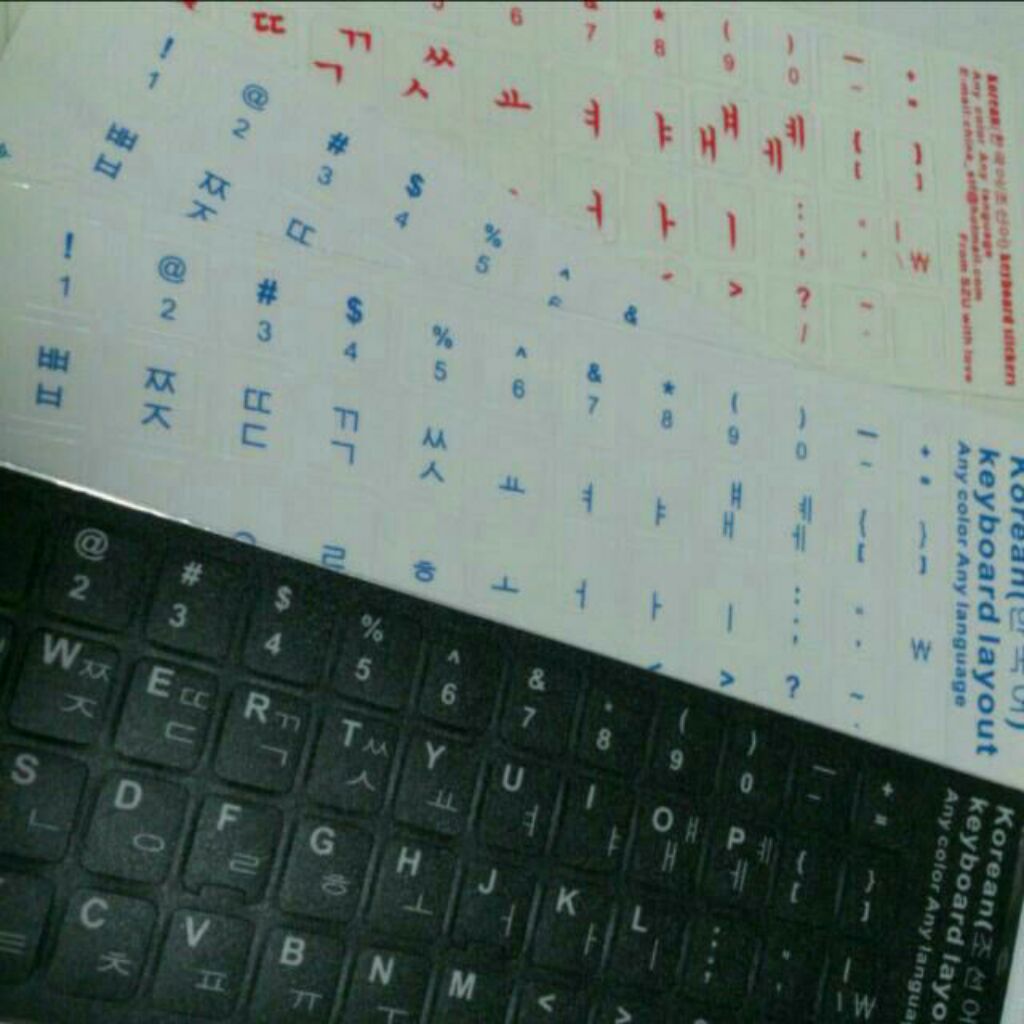 ㄸ ㄲ ㅆ 6 & 7 * 8 ( 9 ) 0 _ - + =
ㄱ ㅅ ㅛ ㅕ ㅑ ㅒ ㅐ ㅖ ㅔ { [ } ]
ㅓ ㅏ ㅣ : ; " ' | \ ₩
> ? /
keyboard stickers
Any color Any language
From SZU with love
! 1 @ 2 # 3 $ 4 % 5 ^ &
ㅃ ㅂ ㅉ ㅈ ㄸ
! 1 @ 2 # 3 $ 4 % 5 ^ 6 & 7 * 8 ( 9 ) 0 _ - + =
ㅃ ㅂ ㅉ ㅈ ㄸ ㄷ ㄲ ㄱ ㅆ ㅅ ㅛ ㅕ ㅑ ㅒ ㅐ ㅖ ㅔ { [ } ]
ㄹ ㅎ ㅗ ㅓ ㅏ ㅣ : ; " ' ₩
< > ? ~
Korean(한국어)
keyboard layout
Any color Any language
@ 2 # 3 $ 4 % 5 ^ 6 & 7 * 8 ( 9 ) 0 _ - + =
W ㅉ ㅈ E ㄸ ㄷ R ㄲ ㄱ T ㅆ ㅅ Y ㅛ U ㅕ I ㅑ O ㅒ ㅐ P ㅖ ㅔ { [ } ]
S ㄴ D ㅇ F ㄹ G ㅎ H ㅗ J ㅓ K ㅏ L ㅣ : ; " ' | \ ₩
C ㅊ V ㅍ B ㅠ N ㅜ M < >
Korean(조선어
keyboard layo
Any color Any langua